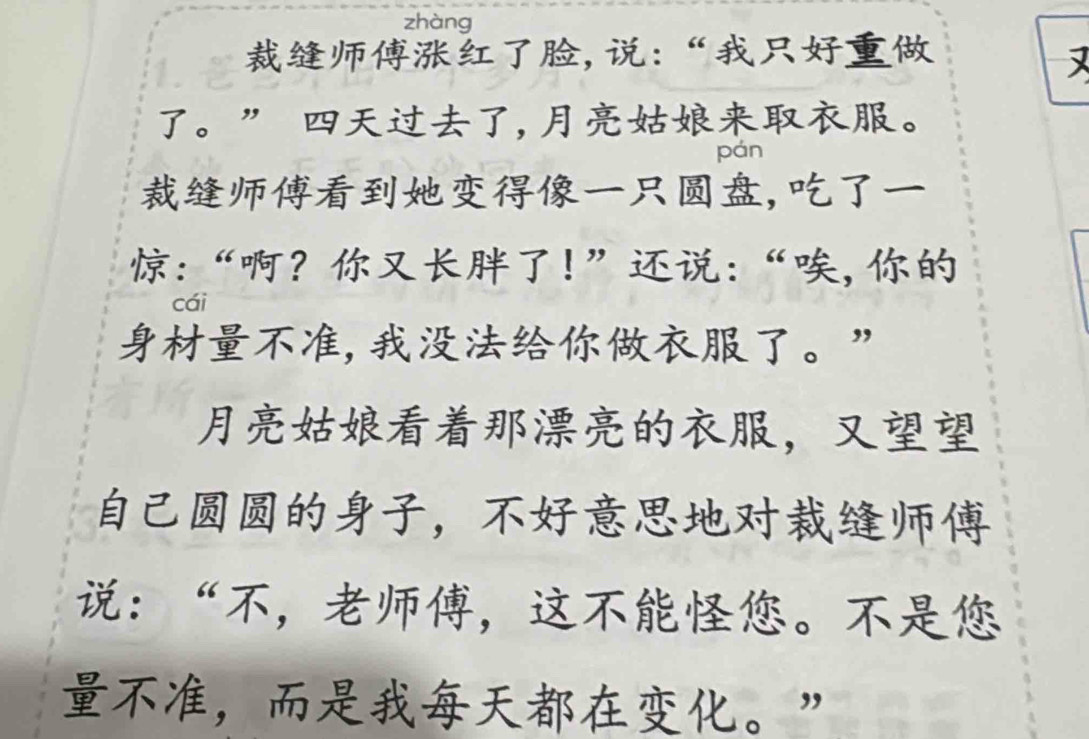 zhàng
裁缝师傅涨红了脸，说：“我只好重做
了。” 四天过去了，月亮姑娘来取衣服。
pán
裁缝师傅看到她变得像一只圆盘，吃了一
惊：“啊？你又长胖了！”还说：“唉，你的
cái
身材量不准，我没法给你做衣服了。”
月亮姑娘看着那漂亮的衣服，又望望
自己圆圆的身子，不好意思地对裁缝师傅
说：“不，老师傅，这不能怪您。不是您
量不准，而是我每天都在变化。”